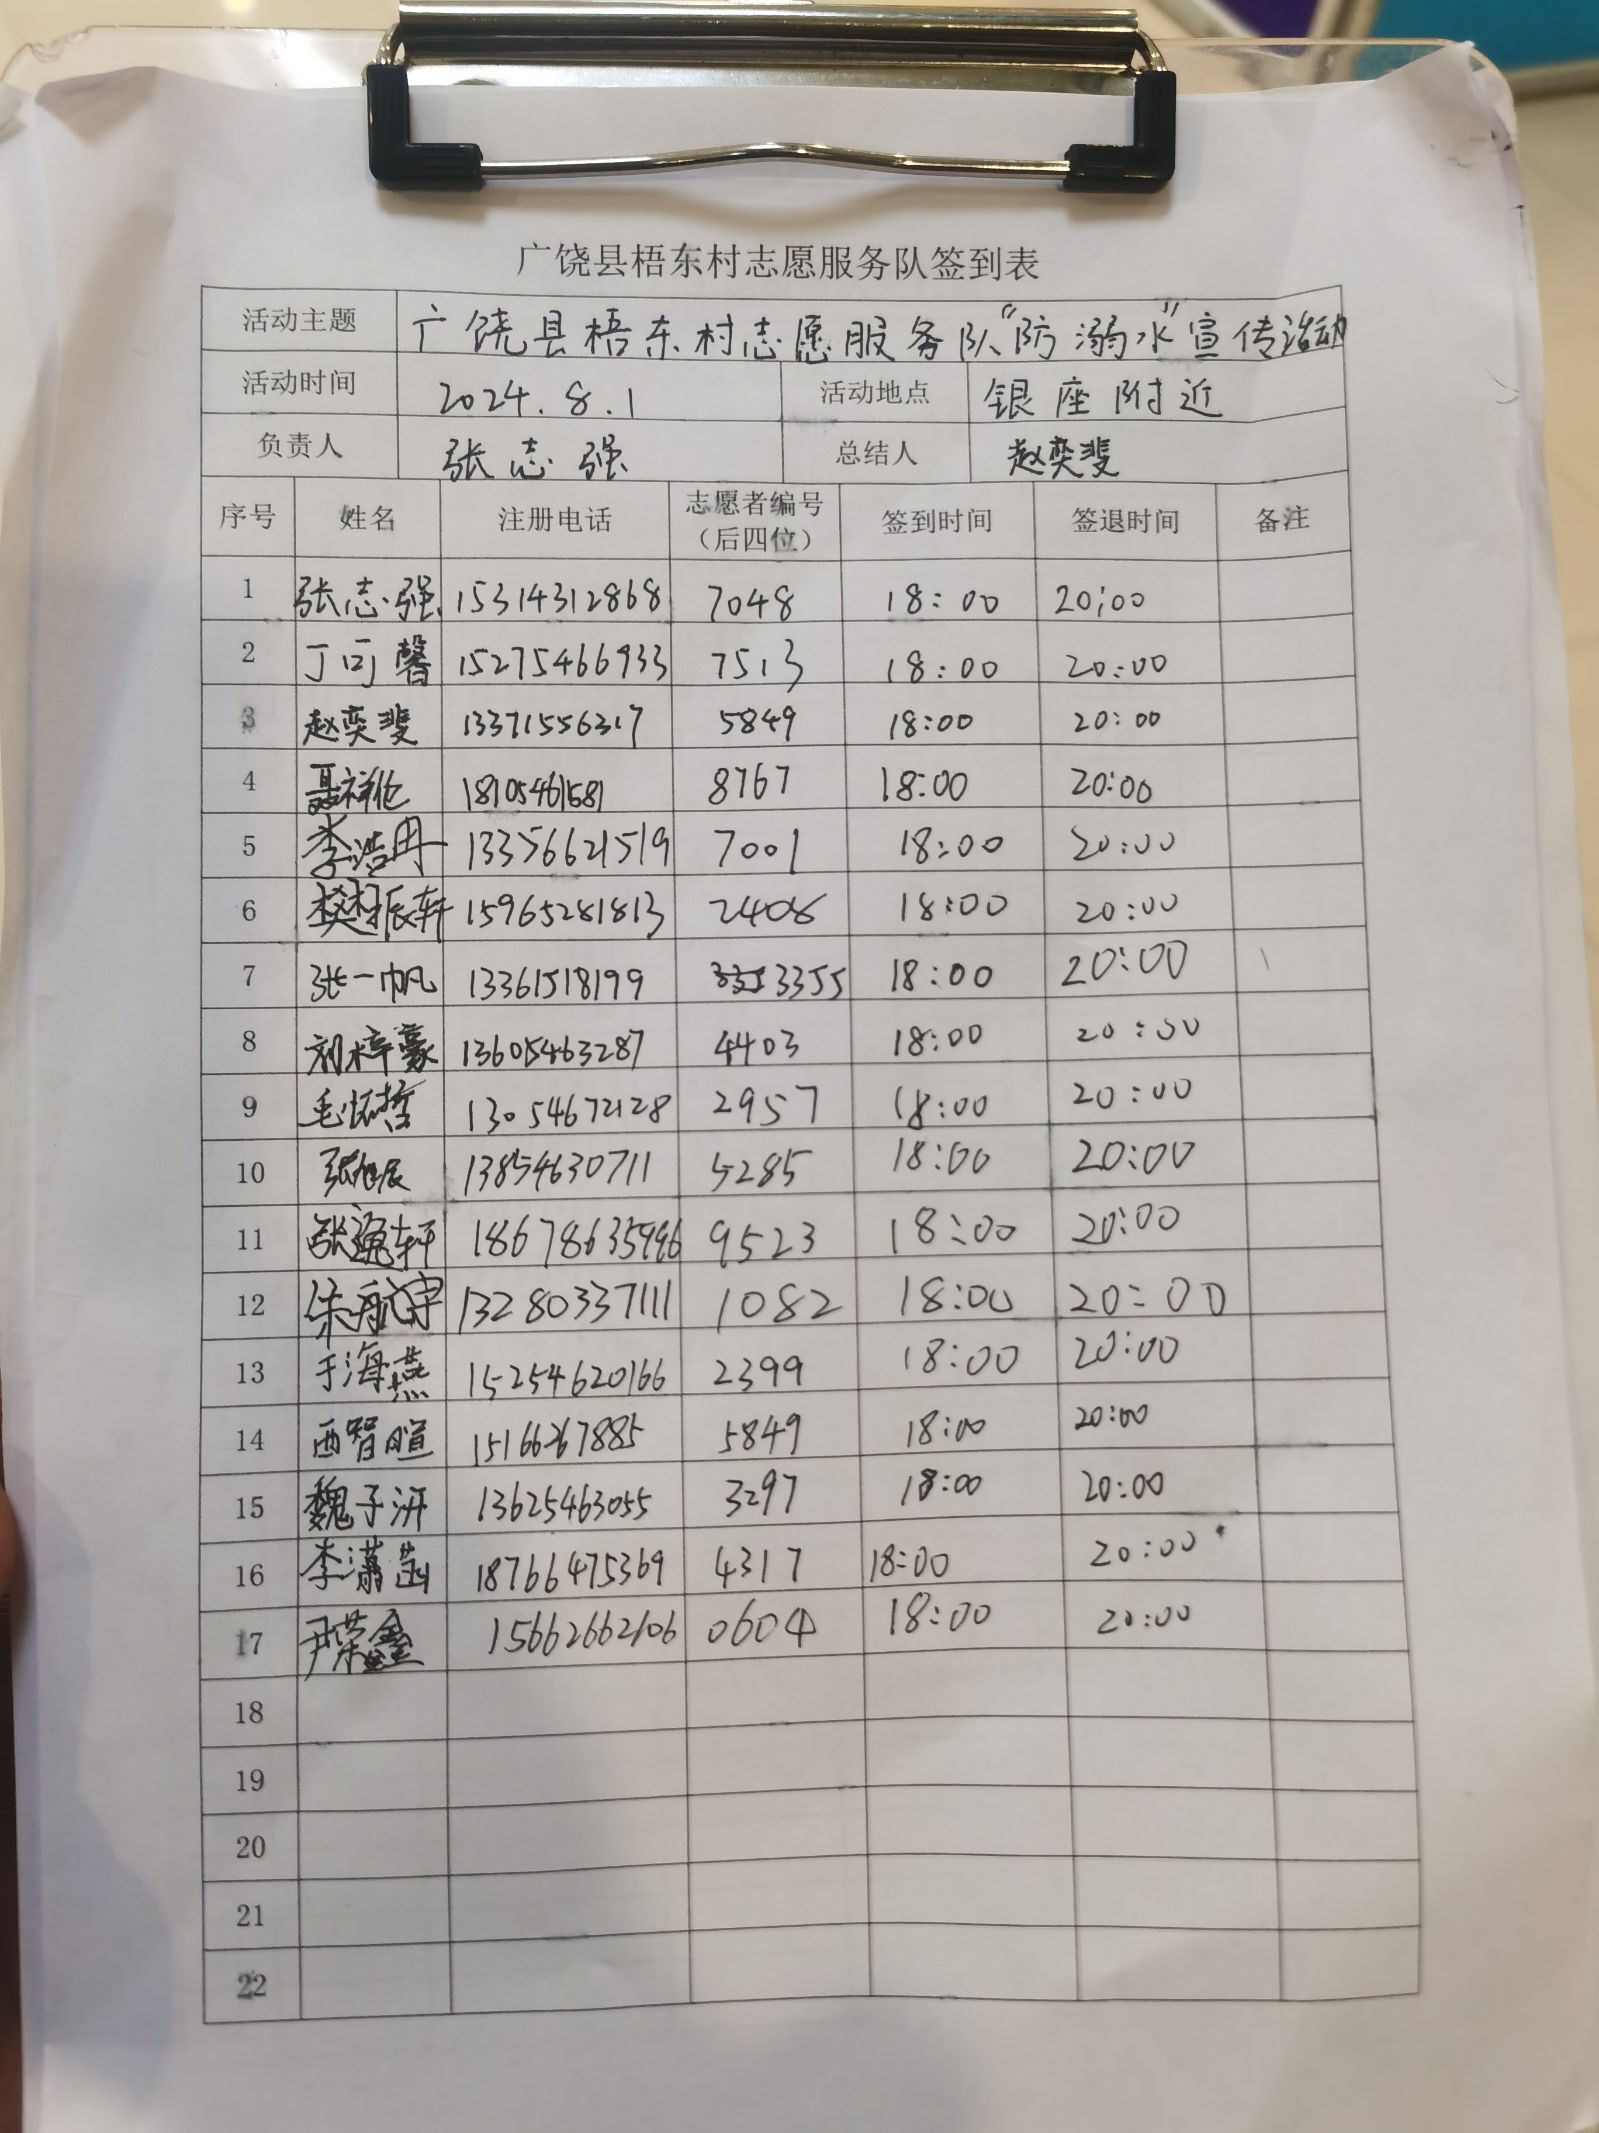 广饶县梧东村志愿服务队签到表
活动主题 广饶县梧东村志愿服务队“防溺水”宣传活动
活动时间 2024.8.1 活动地点 银座附近
负责人 张志强 总结人 赵奕斐
序号 姓名 注册电话 志愿者编号（后四位） 签到时间 签退时间 备注
1 张志强 15314312868 7048 18:00 20:00
2 丁可馨 15275466933 7513 18:00 20:00
3 赵奕斐 13371556317 5849 18:00 20:00
4 聂祥伦 18105461581 8767 18:00 20:00
5 李浩冉 13356621519 7001 18:00 20:00
6 樊振轩 15965281813 2408 18:00 20:00
7 张一帆 13361518199 3355 18:00 20:00
8 刘梓豪 13605463287 4403 18:00 20:00
9 毛怀哲 13054672128 2957 18:00 20:00
10 张旭辰 13854630711 5285 18:00 20:00
11 张逸轩 9523 18:00 20:00
12 朱航宇 13280337111 1082 18:00 20:00
13 于海燕 15254620166 2399 18:00 20:00
14 西智暄 15166267885 5849 18:00 20:00
15 魏子汧 13625463055 3297 18:00 20:00
16 李潇菡 18766475369 4317 18:00 20:00
17 尹荣鑫 15662662106 0604 18:00 20:00
18
19
20
21
22